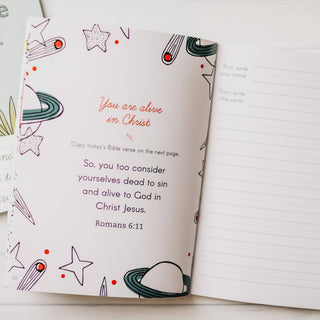 You are alive
in Christ
Copy today's Bible verse on the next page.
So, you too consider
yourselves dead to sin
and alive to God in
Christ Jesus.
Romans 6:11
First, write
your name.
Then, write
the verse.